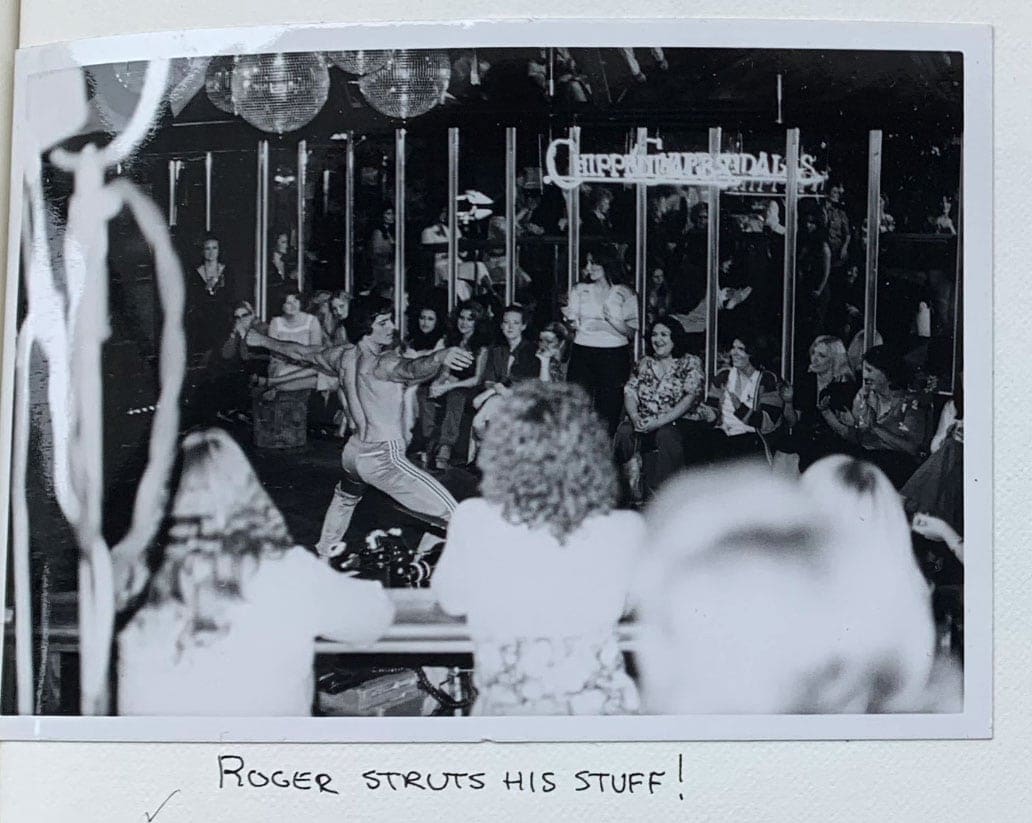 CHIPPENDALES
ROGER STRUTS HIS STUFF!